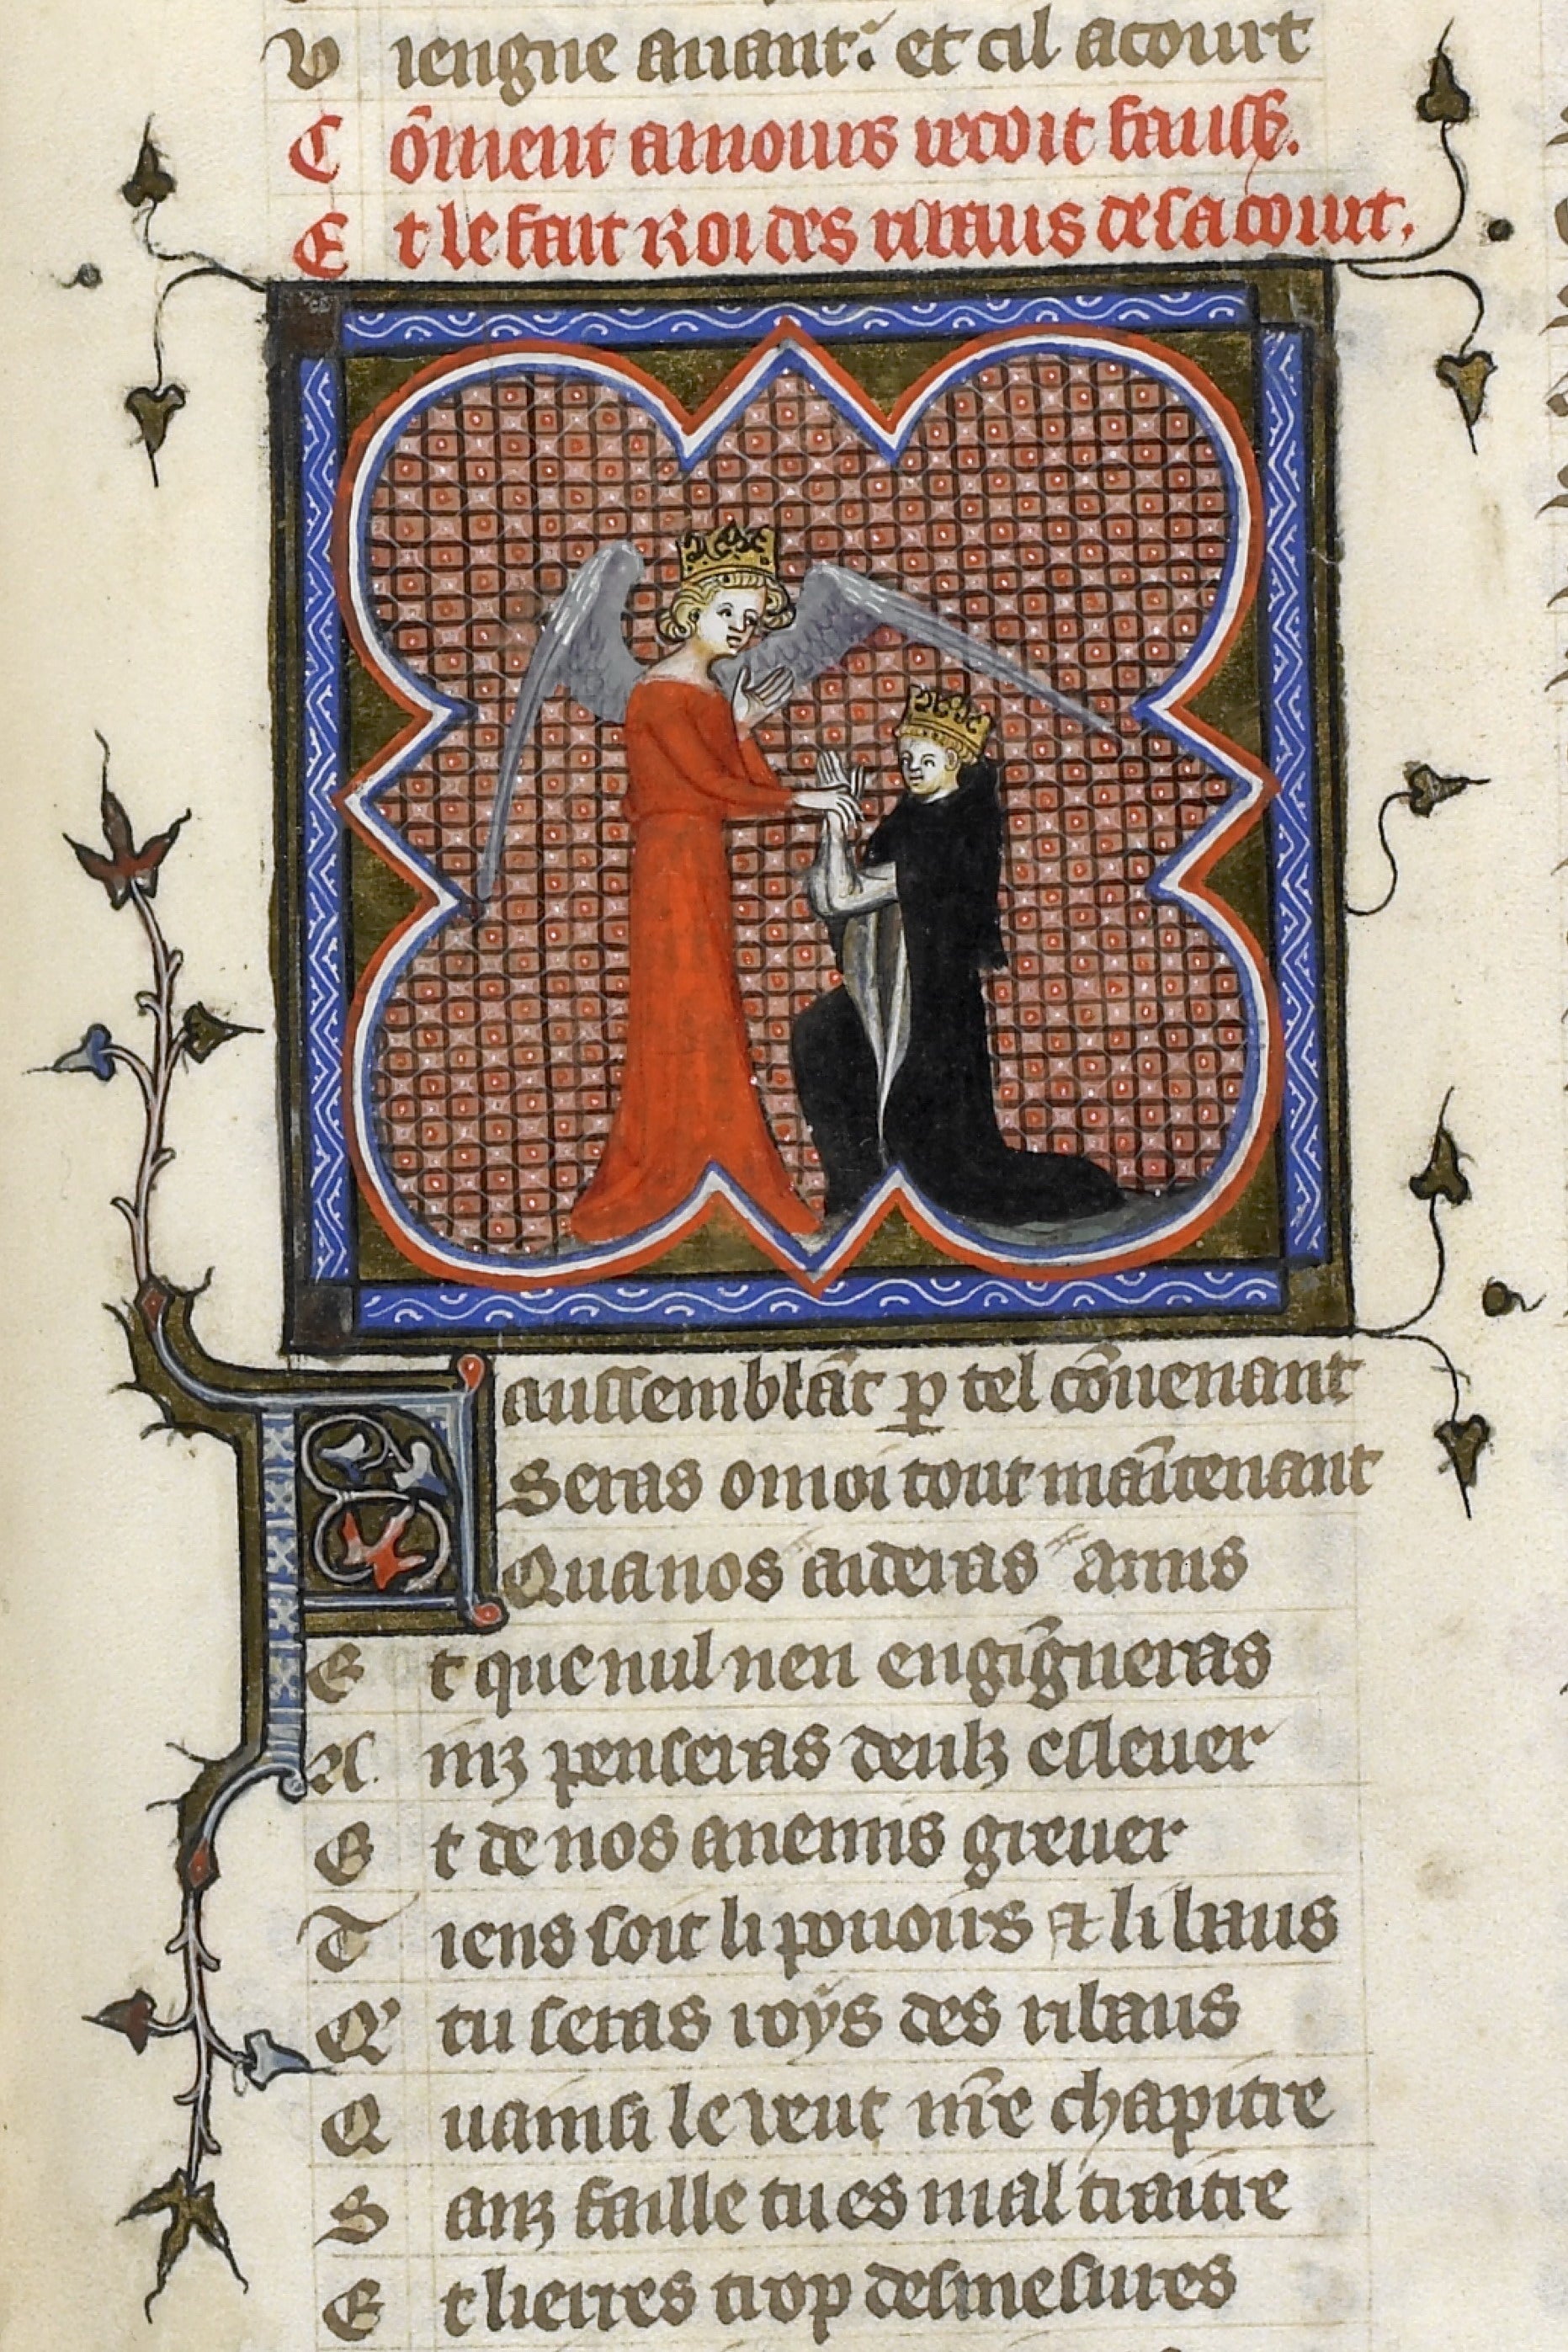 V iengne auant. et cil acourt
C õment amours recoit fauss.
E t le fait Roi des ribaus de sa court.
F aussemblãt p tel cõuenant
Seras o moi tout maĩtenant
Qua nos aideras amis
E t que nul nen engiñgneras
A inz penseras deulz esleuer
E t de nos anemis greuer
T iens soit li pouoirs et li baus
Q' tu seras roys des ribaus
Q uainsi le veut nr̃e chapitre
S anz faille tu es mal traitre
E t lierres trop desmesures